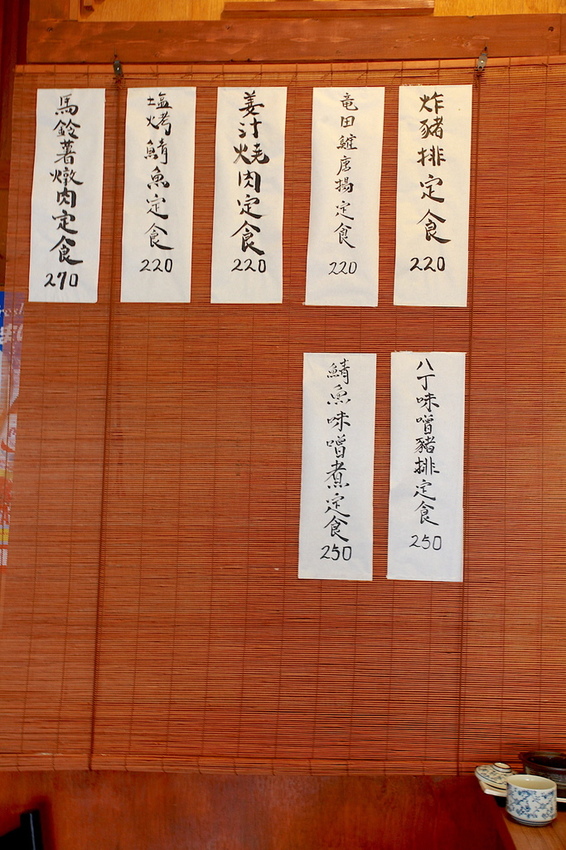 炸豬排定食
220
竜田雞唐揚定食
220
姜汁燒肉定食
220
塩烤鯖魚定食
220
馬鈴薯燉肉定食
270
八丁味噌豬排定食
250
鯖魚味噌煮定食
250